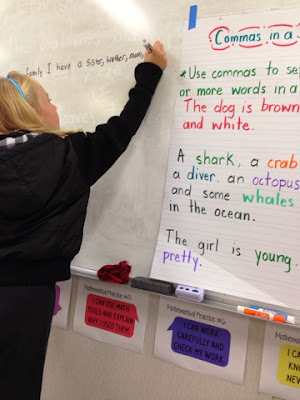 family I have a sister, brother, mom,
Commas in a
* Use commas to se
or more words in a
The dog is brown
and white.
A shark, a crab
a diver, an octopus
and some whales
in the ocean.
The girl is young,
pretty.
Mathematical Practice #5
I CAN USE MATH
TOOLS AND EXPLAIN
WHY I USED THEM.
Mathematical Practice #6
I CAN WORK
CAREFULLY AND
CHECK MY WORK.
Mathematical
I CA
KNO
NEV